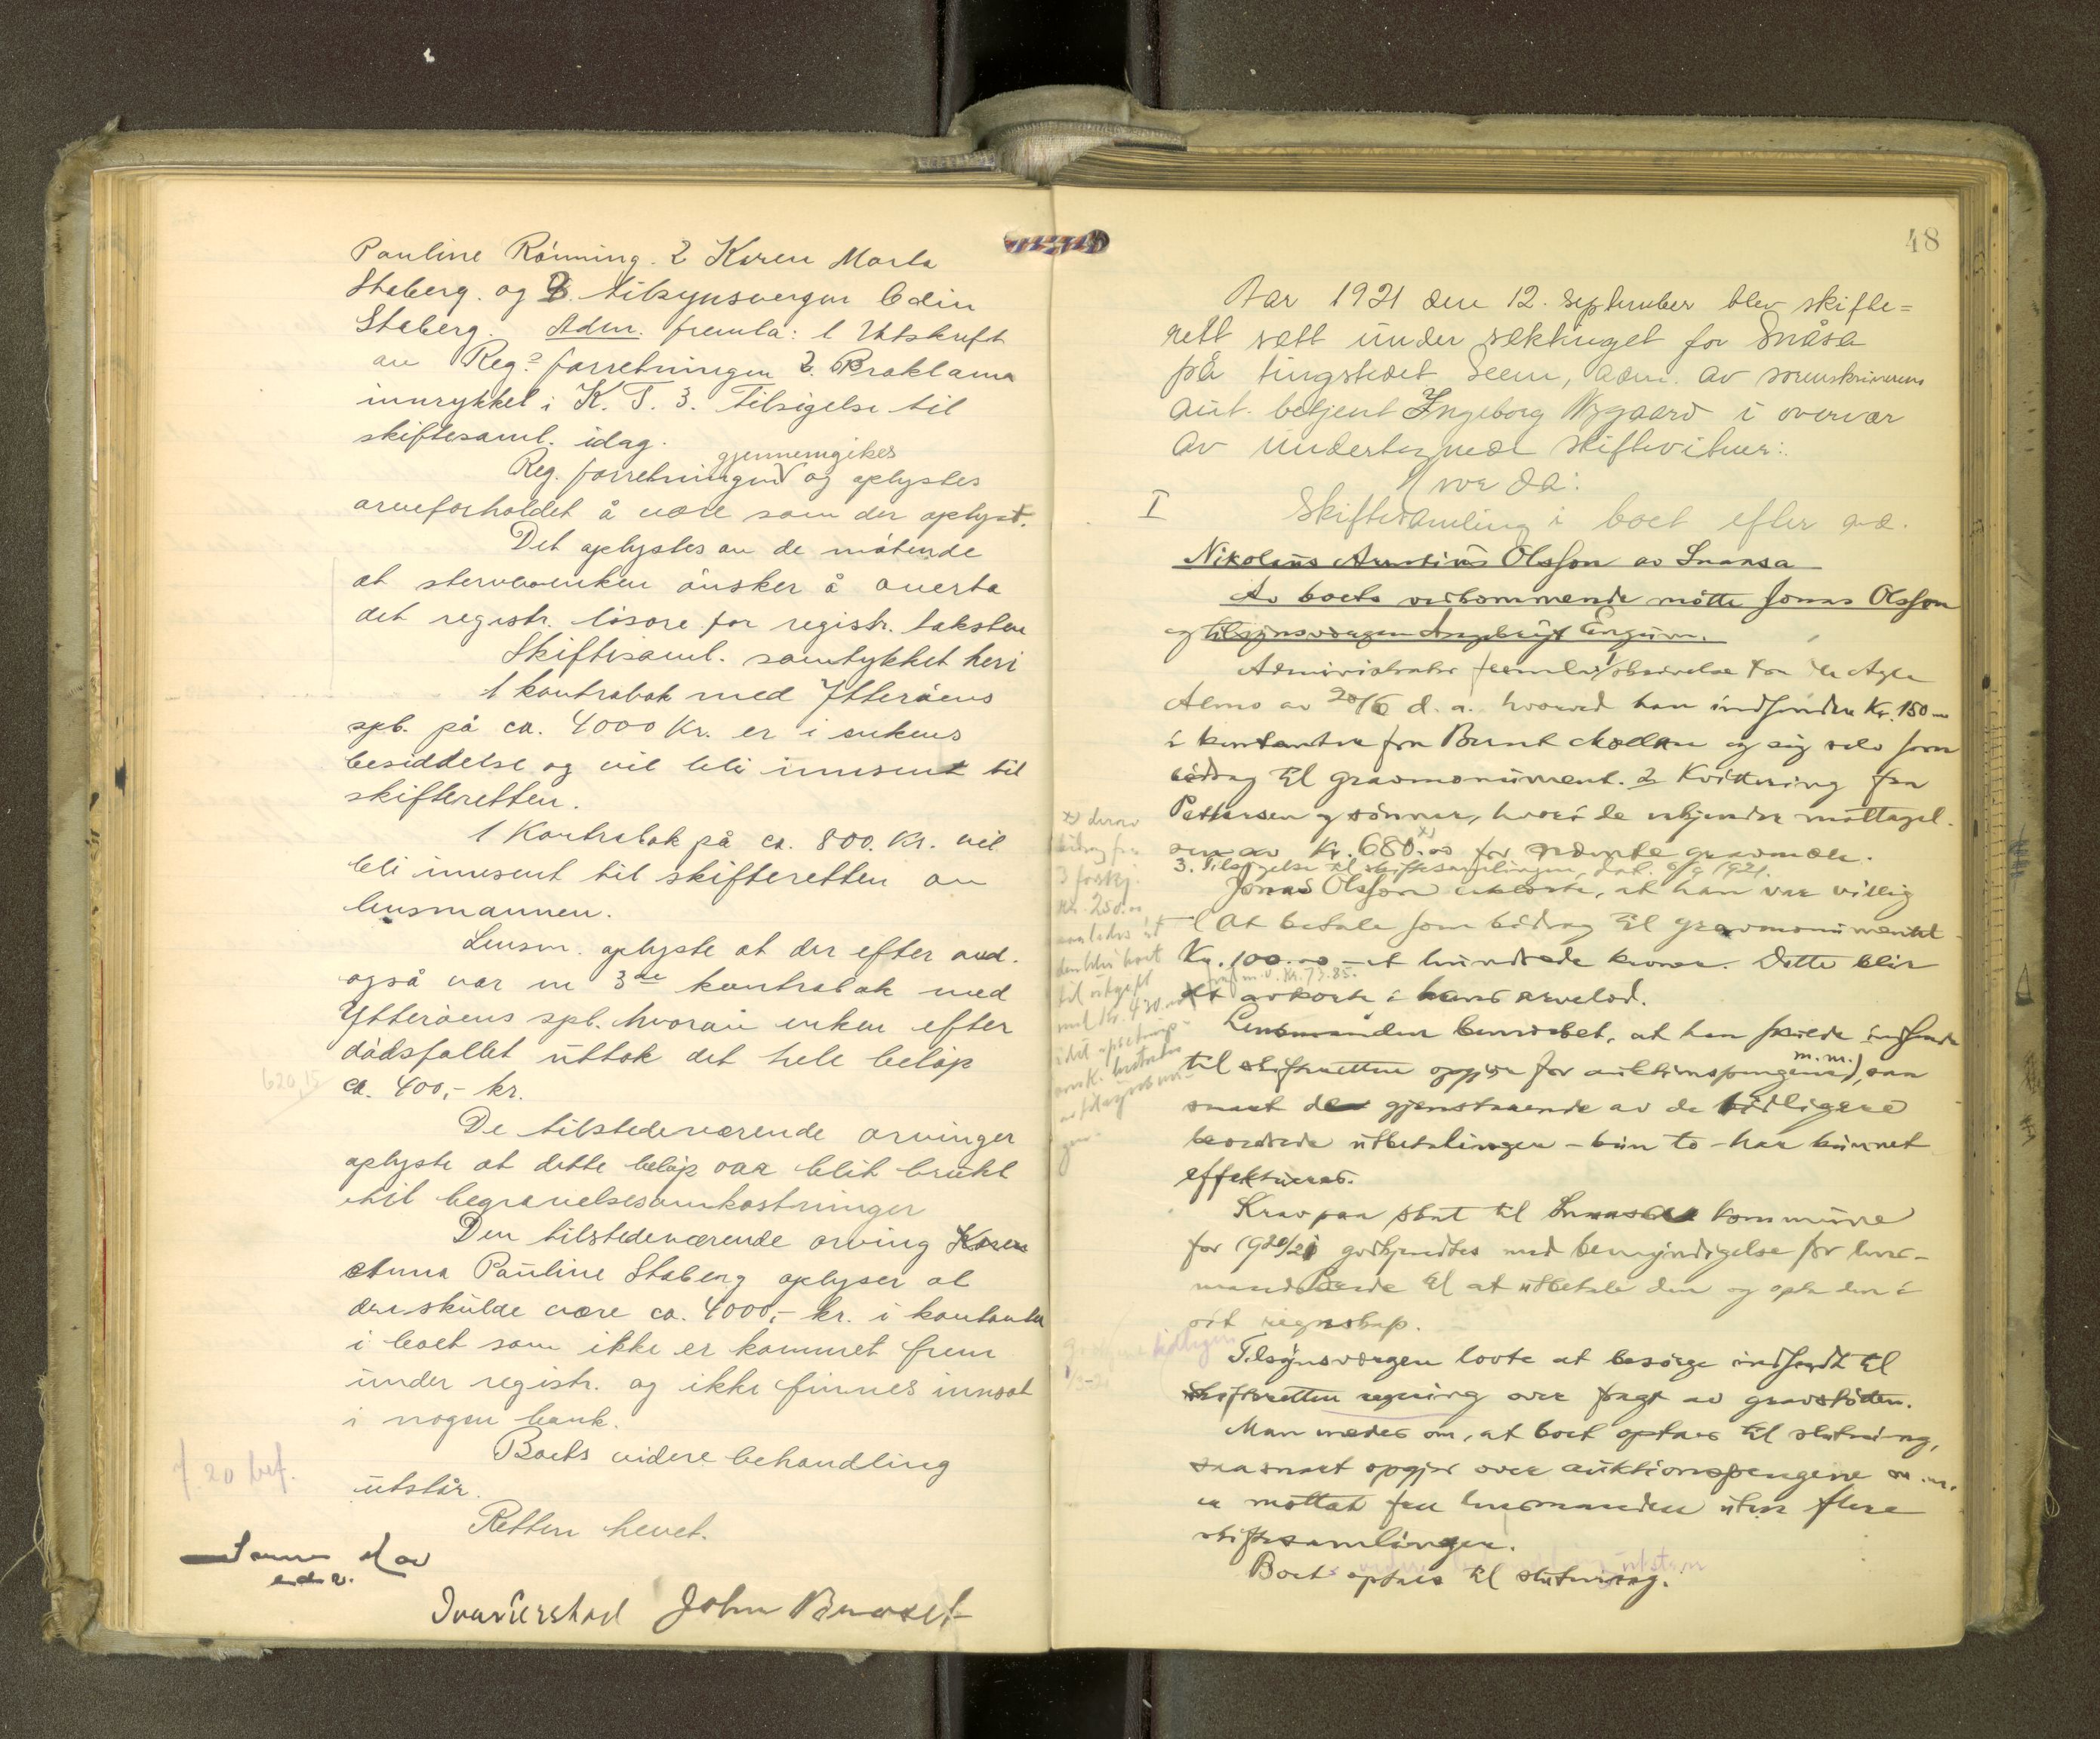 Pauline Rönning. 2 Karen Marta
Staberg. og 3. tilsynsvergen Odin
Staberg. Adm. fremla: 1 Utskrift
av Reg.s forretningen 2. Proklama
innrykket i K. T. 3. Tilsigelse til
skiftesaml. idag.
gjennemgikes
Reg. forretningen V og oplystes
arveforholdet å være som der oplyst.
Det oplystes av de mötende
at stervboenken önsker å överta
det registr. lösöre for registr. taksten
Skiftesaml. samtykket heri
1 kontrabok med Ytteröens
spb. på ca. 4000 Kr. er i enkens
besiddelse og vil bli innsent til
skifteretten.
1 Kontrabok på ca. 800. Kr. vil
bli innsent til skifteretten av
lensmannen.
Lensm. oplyste at der efter avd.
også var en 3de kontrabok med
Ytteröens spb. hvorav enken efter
dödsfallet uttok det hele belöp
620,15
ca. 400,- kr.
De tilstedeværende arvinger
oplyste at dette belöp var blit brukt
til begravelsesomkostninger
Den tilstedeværende arving Karen
Anna Pauline Staberg oplyser at
der skulde være ca. 4000,- kr. i kontanter
i boet som ikke er kommet frem
under registr. og ikke finnes innsat
i nogen bank.
Boets videre behandling
f. 20 bef.
utstår.
Retten hevet.
John Buvoset
48
Aar 1921 den 12. september blev skifte=
rett satt under tekkinget for Snåsa
på tingstedet Seem, adm. av sorenskriverens
aut. betjent Ingeborg Nygaard i overvær
av undertegnede skiftevitner:
Hvor da:
I Skiftesamling i boet efter avd.
Nikolaus Olsson av Snaasa
Av boets vedkommende mötte Jonas Olsson
og tilsynsvergen Ingebrigt Ergum.
Administrator fremla 1 skrivelse fra
Almo av 20/6 d. a. hvorved han indsender Kr. 150.00
i kontanter fra Bernt og sig selv som
bidrag til gravmonument. 2 Kvittering fra
Pettersen og sönner, hvori de erkjender mottagel-
sen av Kr. 680.00 x) for nævnte gravmæle.
3. Tilsigelse til skiftesamlingen, dat. 6/9 1921.
Jonas Olsson erklærte, at han var villig
til at betale som bidrag til gravmonumentet
Kr. 100.00 - et hundrede kroner. Dette blir
m.v. Kr. 73.85.
at avkorte i hans arvelod.
Lensmanden bemerket, at han skulde indsende
til skifteretten opgjör for auktionspengene m.m.), saa
snart de gjenstaaende av de tidligere
beordrede utbetalinger - kun to - har kunnet
effektueres.
Krav paa skat til Snaasa kommune
for 1920/21 godkjendtes med bemyndigelse for lens-
mand til at utbetale den og opta den i
sit regnskap.
Tilsynsvergen lovte at besörge indsendt til
skifteretten regning over fragt av gravstöden.
Man enedes om, at boet optaes til slutning,
saasnart opgjör over auktionspengene m.m.
er mottat fra lensmanden uten flere
skiftesamlinger.
Boet optaes til slutning.
x) derav
bidrag fra
3 forskj.
Kr. 250.00
saaledes at
den blir boet
til utgift
med Kr. 430.00